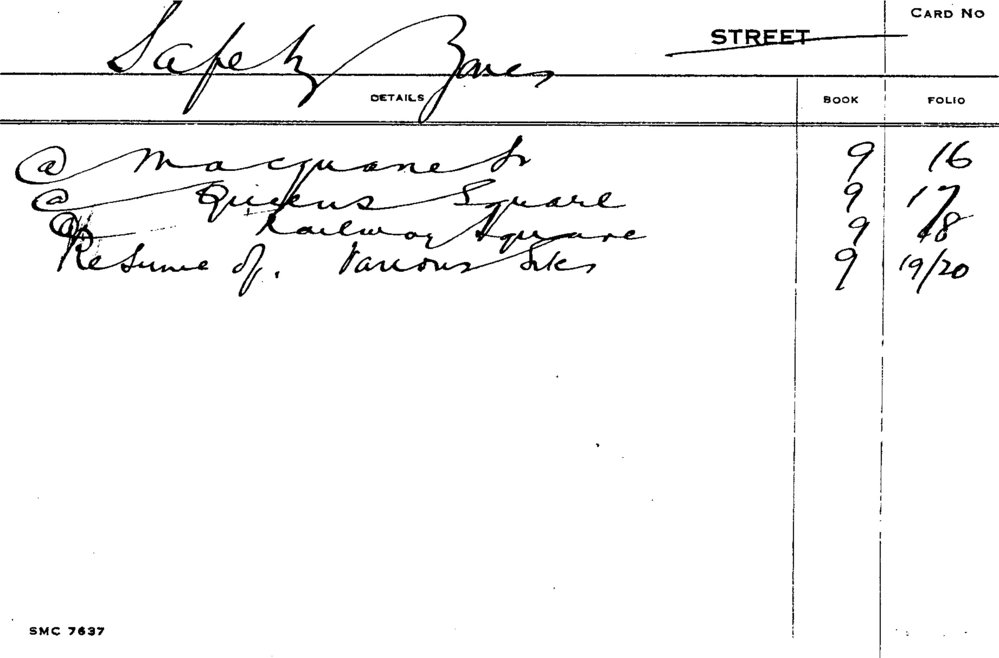 Safety Zones STREET CARD No
DETAILS BOOK FOLIO
@ Macquarie St 9 16
@ Queens Square 9 17
@ Railway Square 9 18
Resume of. Various Sites 9 19/20
SMC 7637